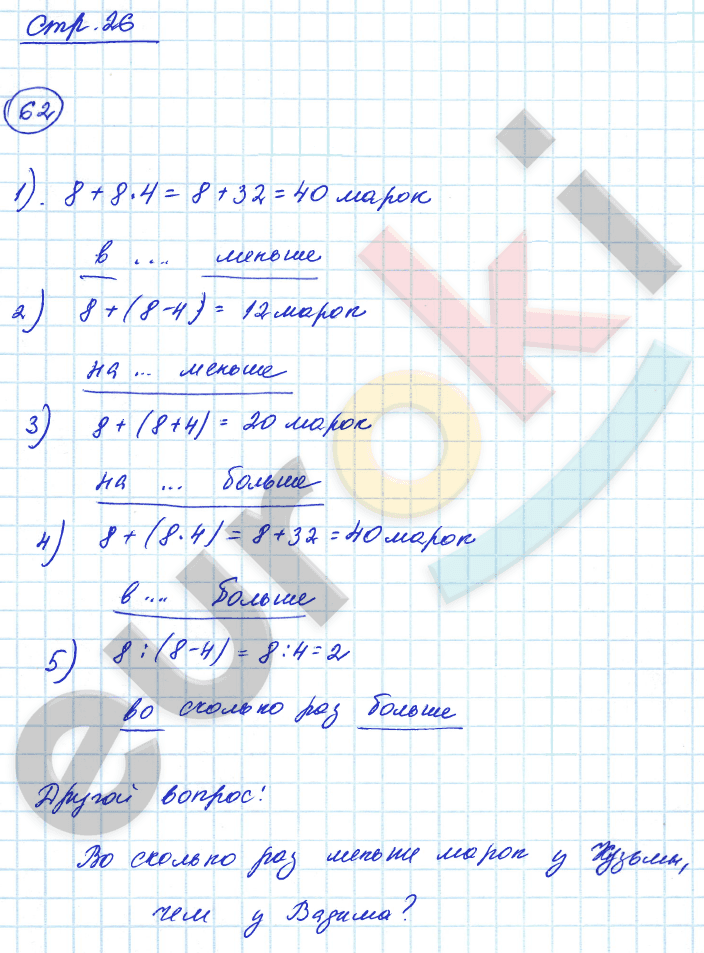 Стр. 26
62
1). 8 + 8·4 = 8 + 32 = 40 марок
в ... меньше
2) 8 + (8-4) = 12 марок
на ... меньше
3) 8 + (8+4) = 20 марок
на ... больше
4) 8 + (8·4) = 8 + 32 = 40 марок
в ... больше
5) 8 : (8-4) = 8 : 4 = 2
во сколько раз больше
Другой вопрос:
Во сколько раз меньше марок у Кузьмы,
чем у Вадима?
euroki